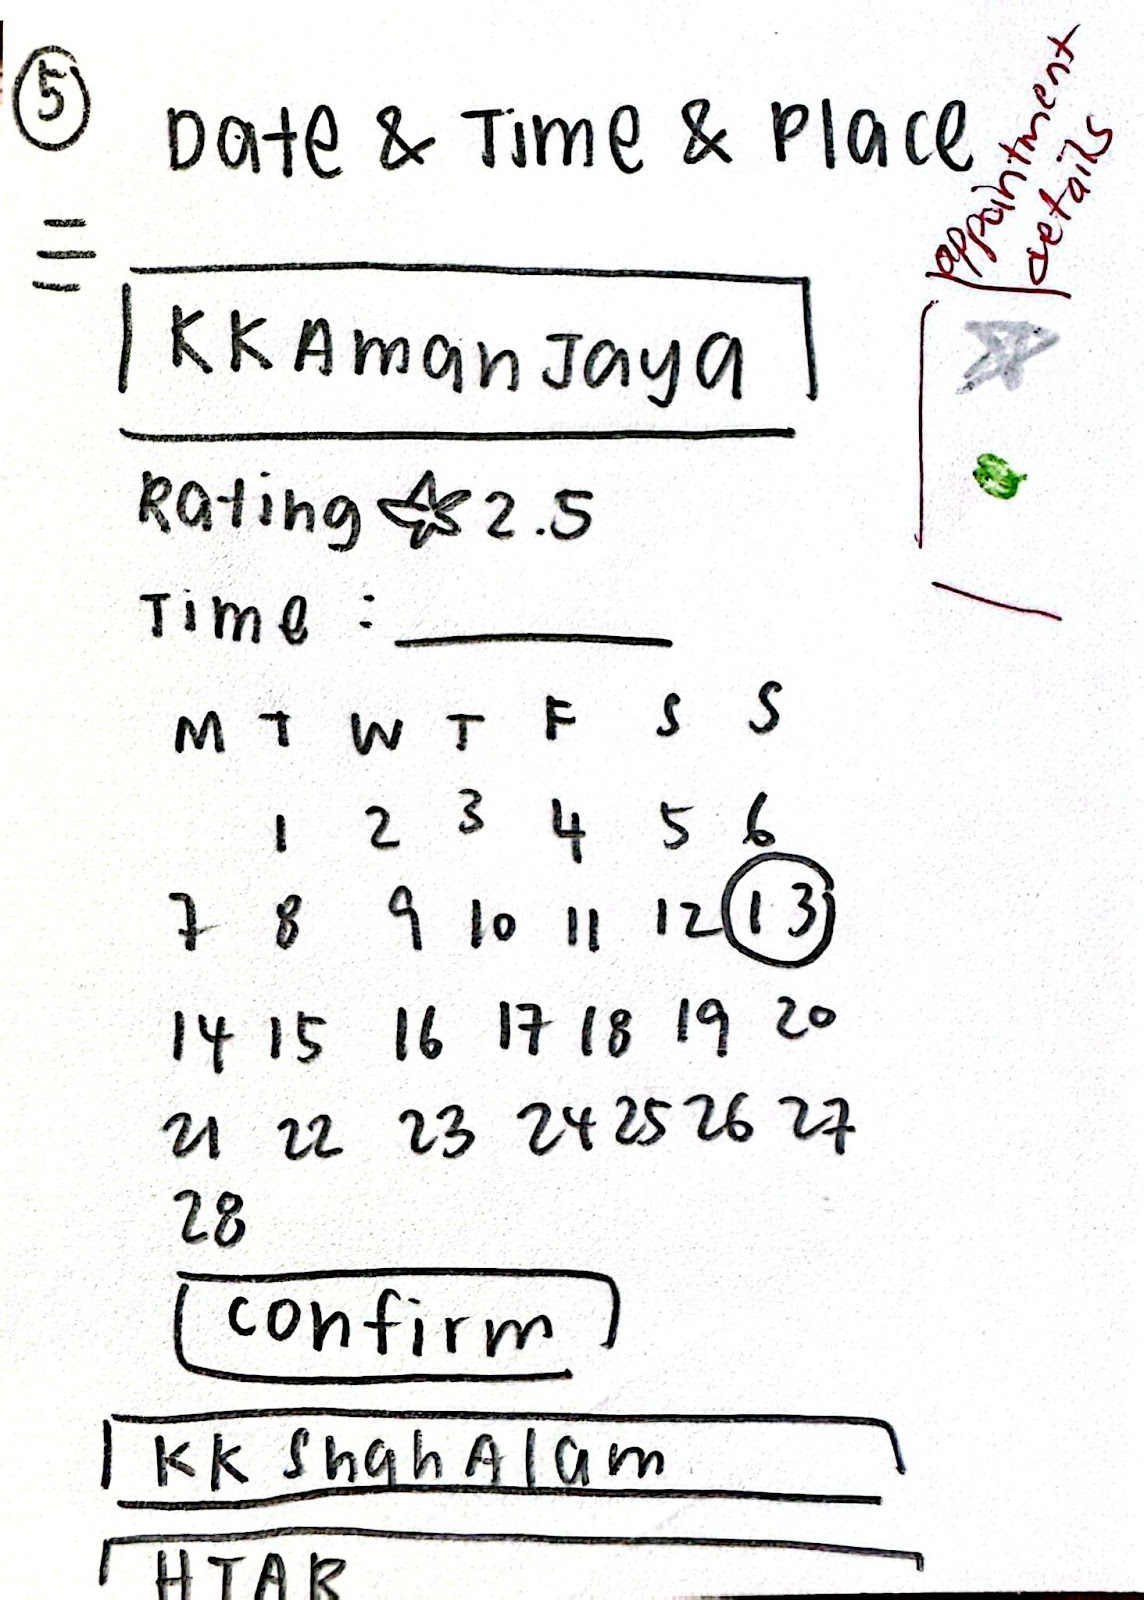 5
Date & Time & Place
appointment
details
KK Aman Jaya
Rating ☆ 2.5
Time : ______
M T W T F S S
1 2 3 4 5 6
7 8 9 10 11 12 13
14 15 16 17 18 19 20
21 22 23 24 25 26 27
28
confirm
KK Shah Alam
HTAR